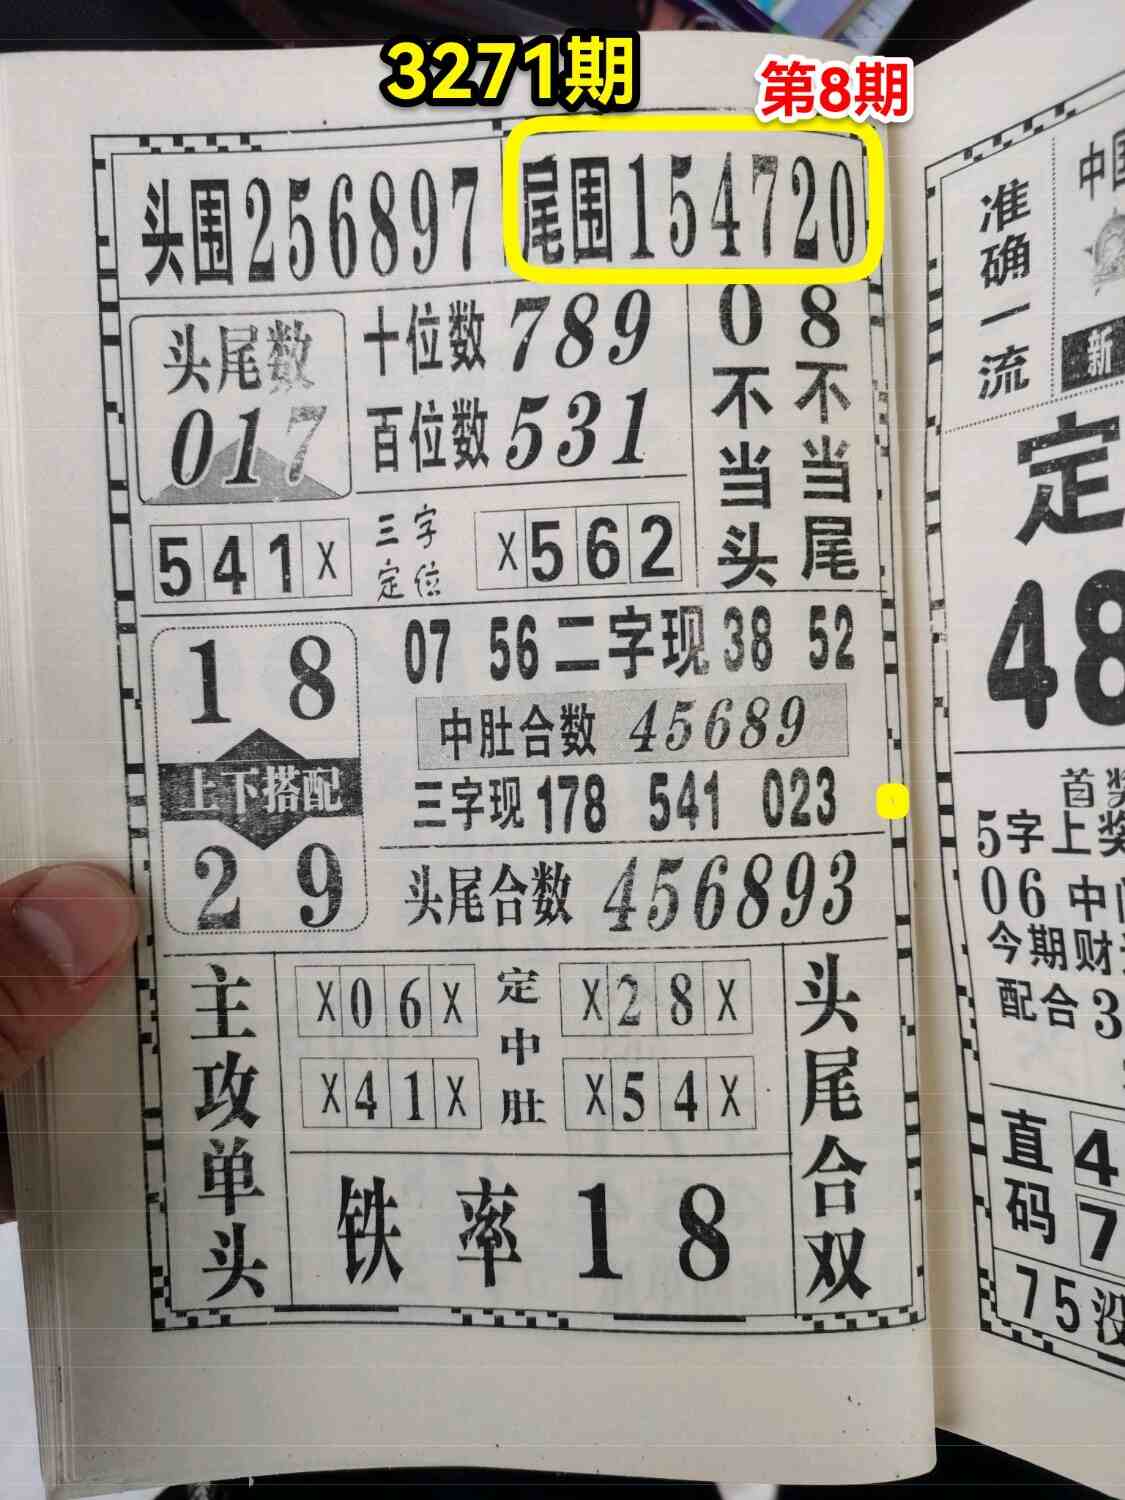 3271期
第8期
头围256897
尾围154720
头尾数
017
十位数 789
百位数 531
0不当头
8不当尾
541X
三字
定位
X562
1 8
上下搭配
2 9
07 56 二字现 38 52
中肚合数 45689
三字现 178 541 023
头尾合数 456893
主攻单头
X06X
X28X
定中肚
X41X
X54X
头尾合双
铁率18
准确一流
中国
新
定
48
首奖
5字上奖
06 中
今期财
配合3
直码
4
7
75没